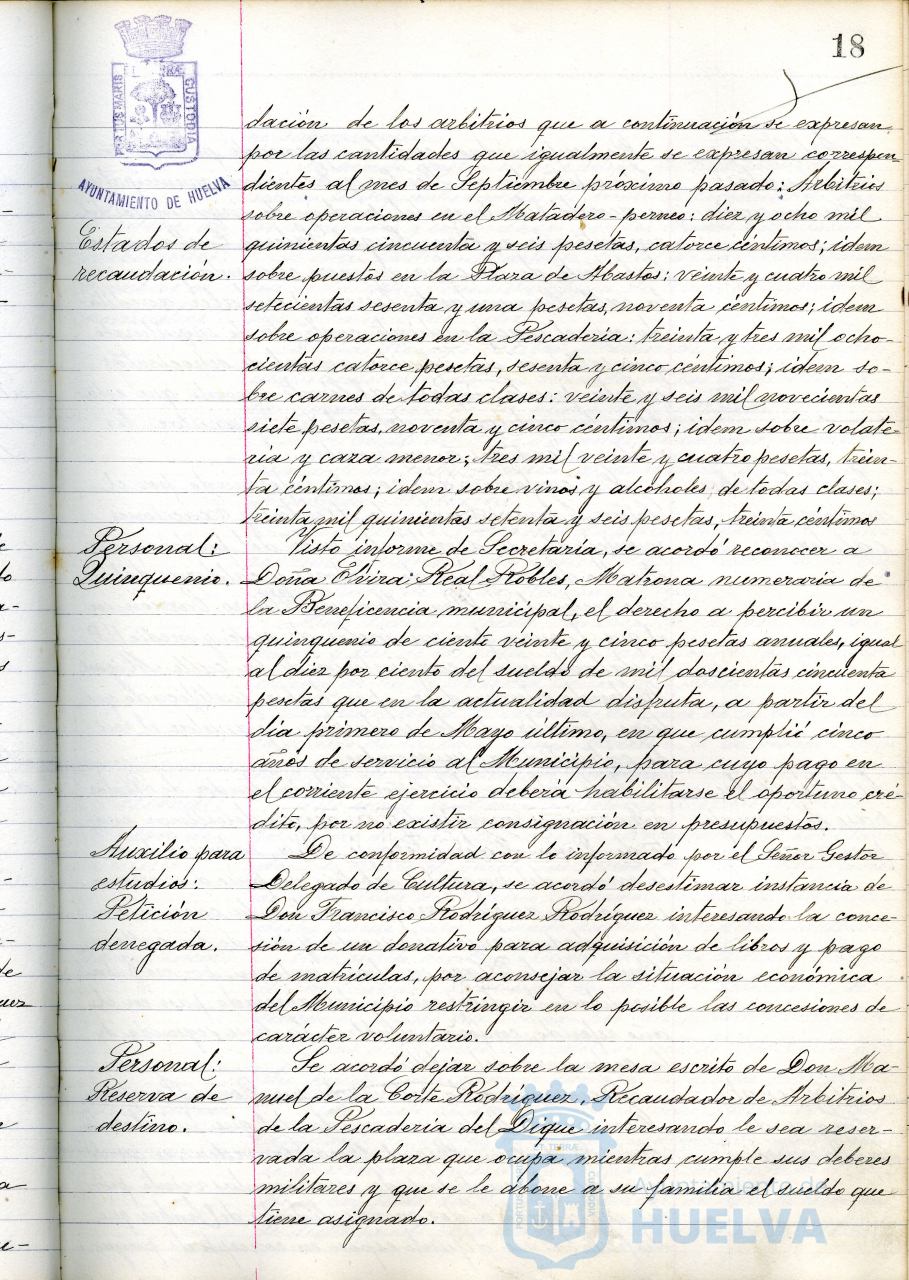 18
PORTUS MARIS ET TERRÆ CUSTODIA
AYUNTAMIENTO DE HUELVA
dación de los arbitrios que a continuación se expresan,
por las cantidades que igualmente se expresan correspon-
dientes al mes de Septiembre próximo pasado: Arbitrios
sobre operaciones en el Matadero-perneo: diez y ocho mil
Estados de
recaudación.
quinientas cincuenta y seis pesetas, catorce céntimos; idem
sobre puestos en la Plaza de Abastos: veinte y cuatro mil
setecientas sesenta y una pesetas, noventa céntimos; idem
sobre operaciones en la Pescadería: treinta y tres mil ocho-
cientas catorce pesetas, sesenta y cinco céntimos; idem so-
bre carnes de todas clases: veinte y seis mil novecientas
siete pesetas, noventa y cinco céntimos; idem sobre volate-
ría y caza menor: tres mil veinte y cuatro pesetas, trein-
ta céntimos; idem sobre vinos y alcoholes de todas clases;
treinta mil quinientas setenta y seis pesetas, treinta céntimos
Personal:
Quinquenio.
Visto informe de Secretaría, se acordó reconocer a
Doña Elvira Real Robles, Matrona numeraria de
la Beneficencia municipal, el derecho a percibir un
quinquenio de ciento veinte y cinco pesetas anuales, igual
al diez por ciento del sueldo de mil doscientas cincuenta
pesetas que en la actualidad disfruta, a partir del
día primero de Mayo último, en que cumplió cinco
años de servicio al Municipio, para cuyo pago en
el corriente ejercicio deberá habilitarse el oportuno cré-
dito, por no existir consignación en presupuestos.
Auxilio para
estudios:
Petición
denegada.
De conformidad con lo informado por el Señor Gestor
Delegado de Cultura, se acordó desestimar instancia de
Don Francisco Rodríguez Rodríguez interesando la conce-
sión de un donativo para adquisición de libros y pago
de matrículas, por aconsejar la situación económica
del Municipio restringir en lo posible las concesiones de
carácter voluntario.
Personal:
Reserva de
destino.
Se acordó dejar sobre la mesa escrito de Don Ma-
nuel de la Corte Rodríguez, Recaudador de Arbitrios
de la Pescadería del Dique interesando le sea reser-
vada la plaza que ocupa mientras cumple sus deberes
militares y que se le abone a su familia el sueldo que
tiene asignado.
Ayuntamiento de
HUELVA